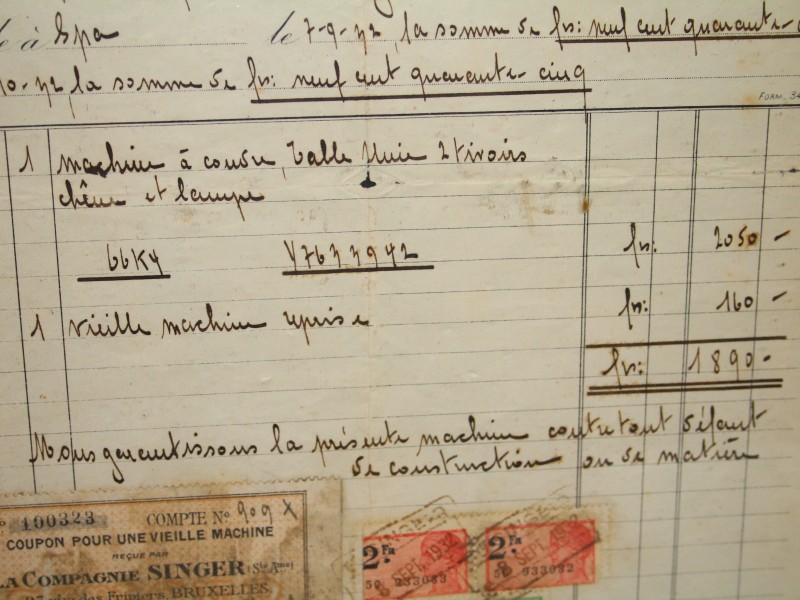 à Spa le 7-9-32, la somme de frs: neuf cent quarante-
10-32, la somme de frs: neuf cent quarante-cinq
FORM. 34
1 machine à coudre, table 2 tiroirs
chêne et lampe
66K4 Y7633942 frs: 2050 -
1 vieille machine reprise frs: 160 -
frs: 1890-
Nous garantissons la présente machine contre tout défaut
de construction ou de matière
N° 100323 COMPTE N° 909 X
COUPON POUR UNE VIEILLE MACHINE
REÇUE PAR
LA COMPAGNIE SINGER (Ste Ame)
rue des Fripiers, BRUXELLES
2 Fr 2 Fr
8 SEPT. 1932 8 SEPT. 1932
50 933083 50 933082